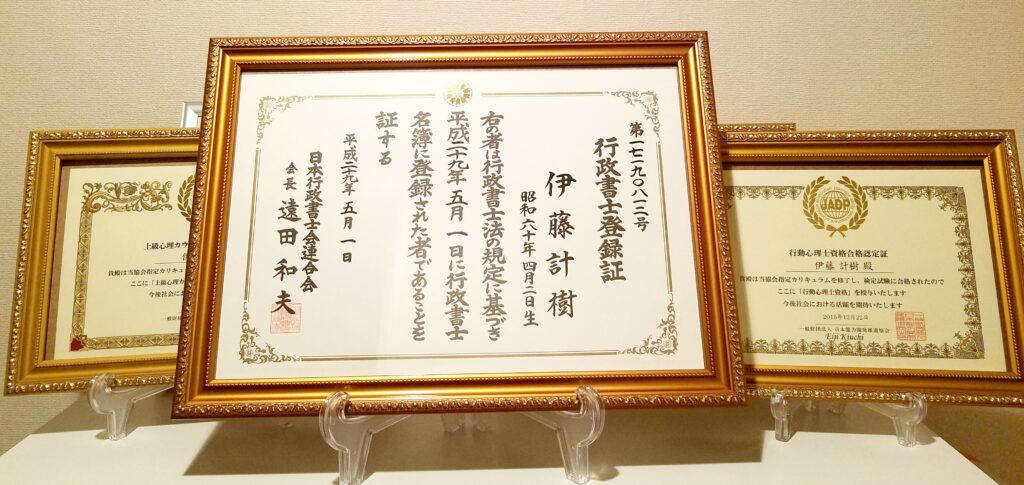 第一七一九〇八一二号
行政書士登録証
伊藤計樹
昭和六十年四月二日生
右の者は行政書士法の規定に基づき
平成二十九年五月一日に行政書士
名簿に登録された者であることを
証する
平成二十九年五月一日
日本行政書士会連合会
会長 遠田和夫
上級心理カウ
貴殿は当協会指定カリキ
ここに「上級心理カ
今後社会にお
一般財
JADP
行動心理士資格合格認定証
伊藤 計樹 殿
貴殿は当協会指定カリキュラムを修了し、検定試験に合格されたので
ここに「行動心理士資格」を授与いたします
今後社会における活躍を期待いたします
2015年12月22日
一般財団法人 日本能力開発推進協会
Eiji Kiuchi